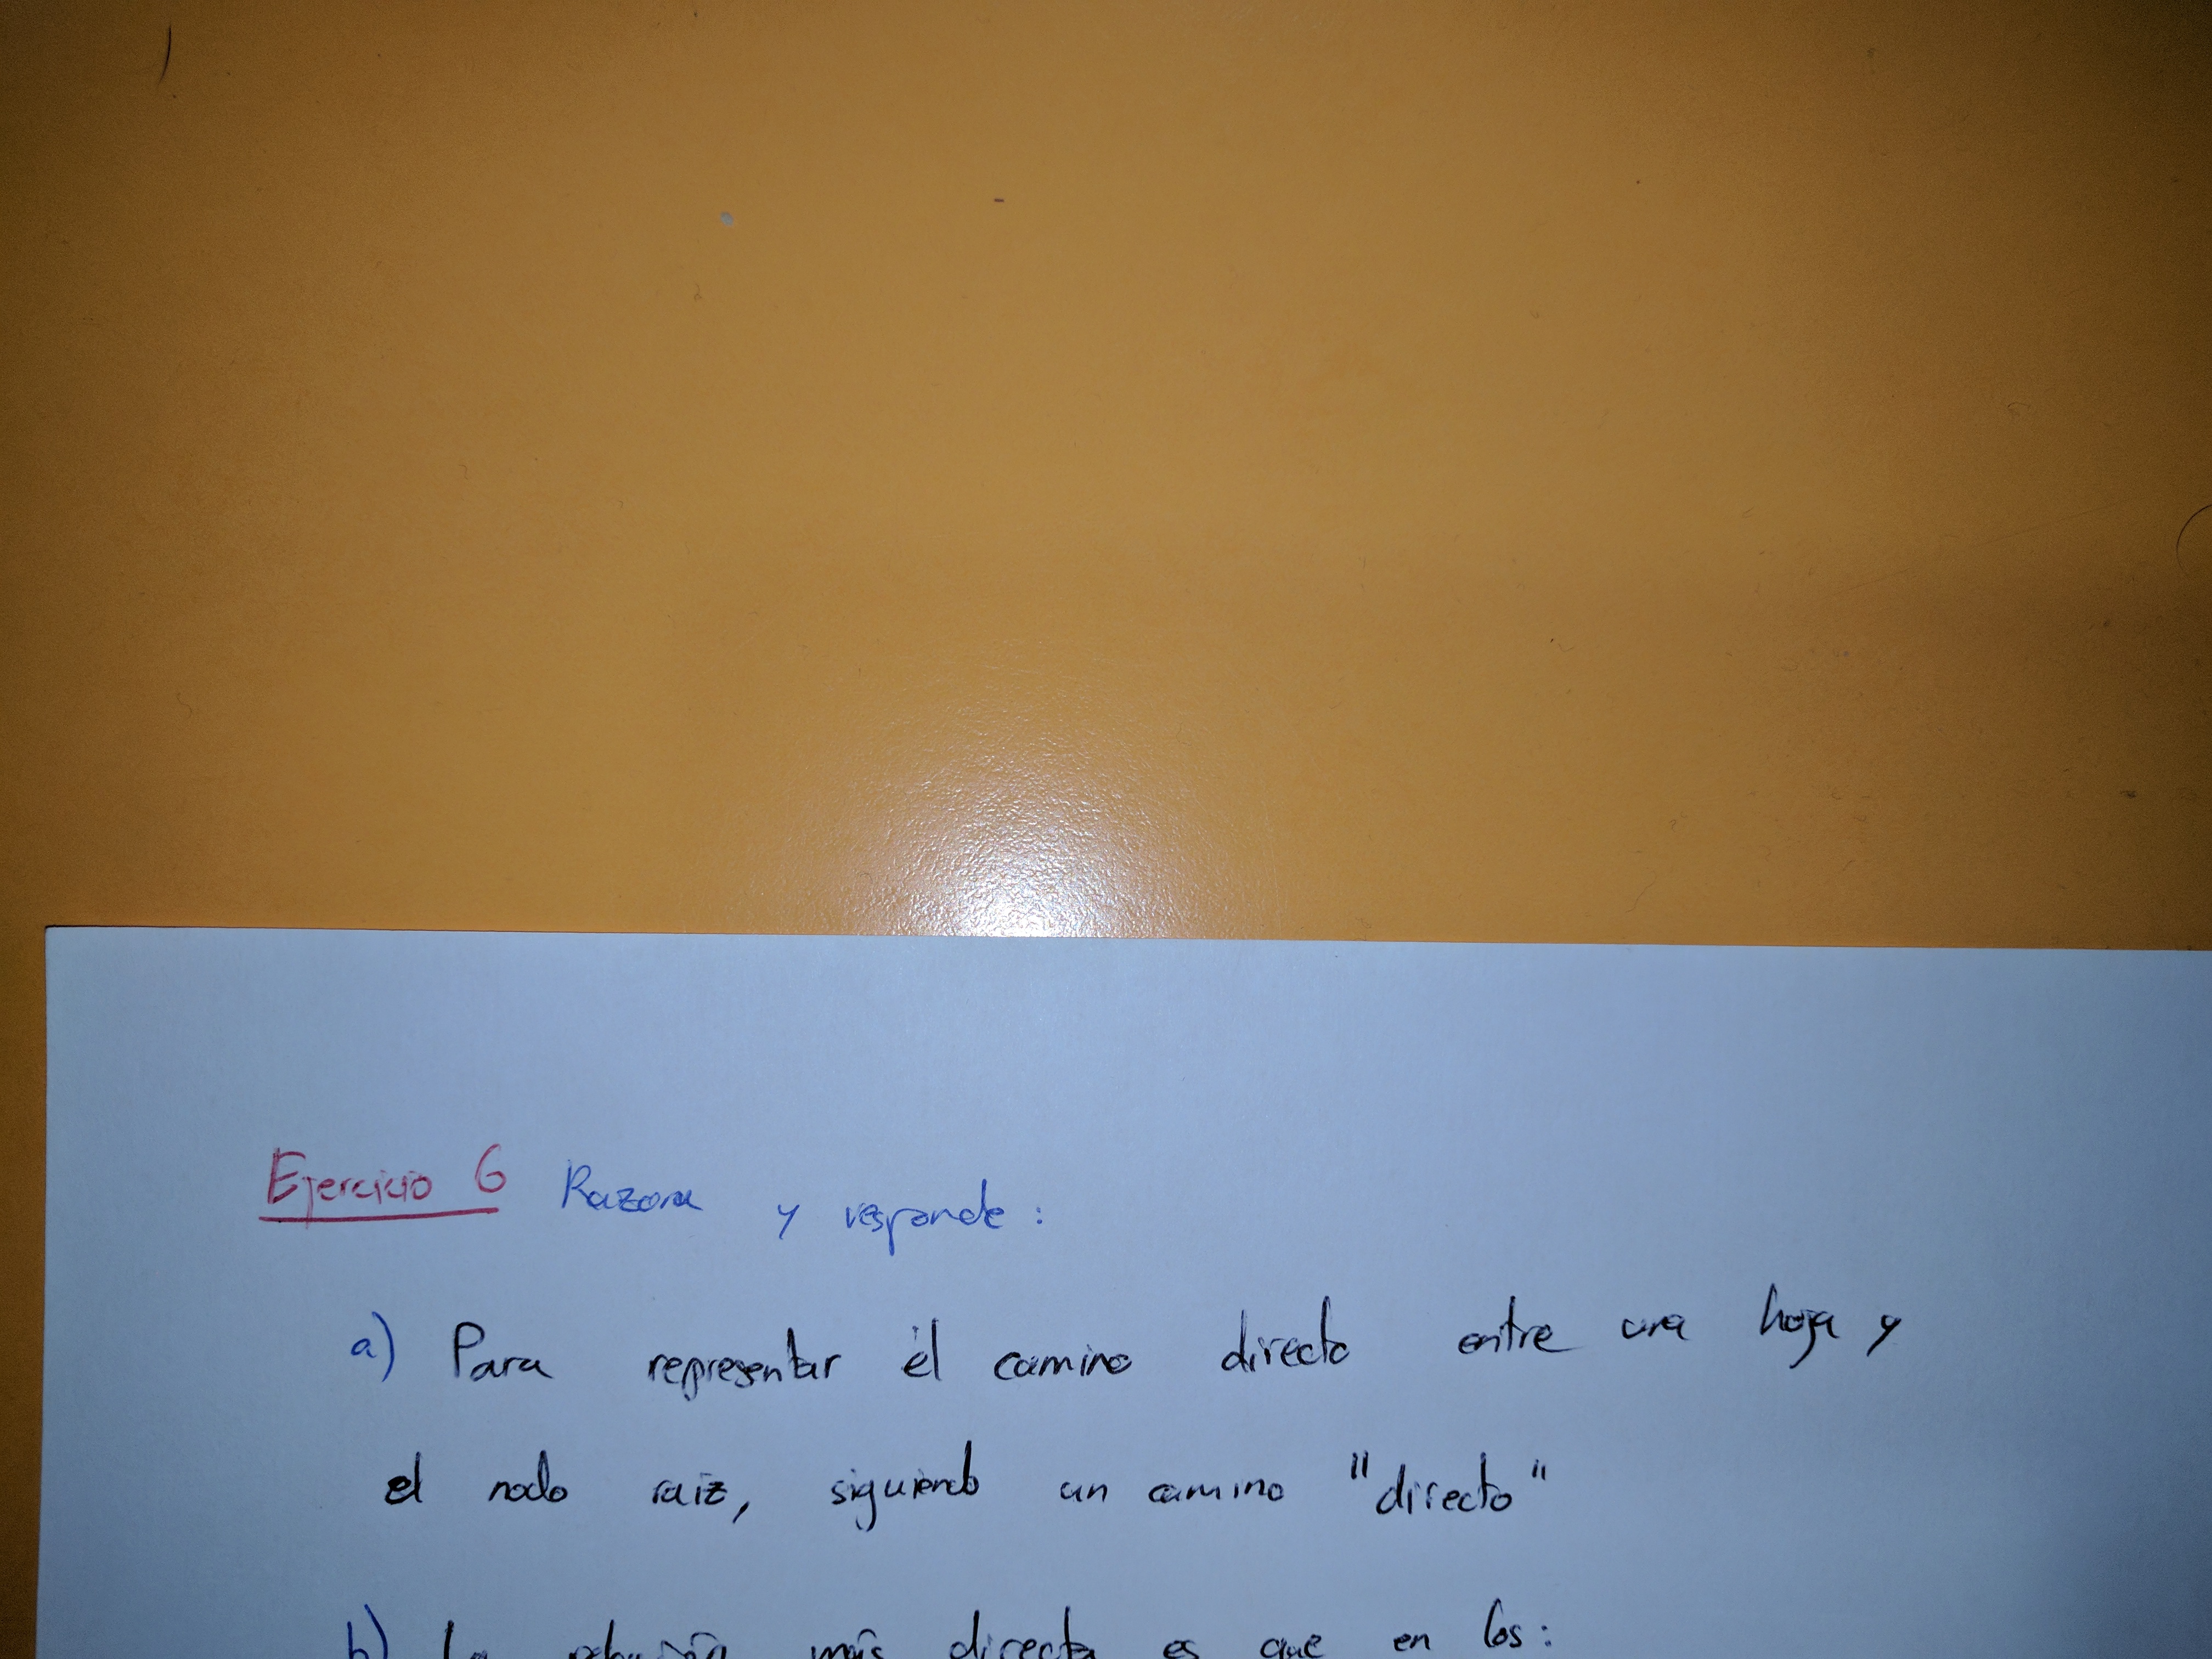 Ejercicio 6 Razona y responde:
a) Para representar el camino directo entre una hoja y
el nodo raiz, siguiendo un camino "directo"
b) La relación más directa es que en los: